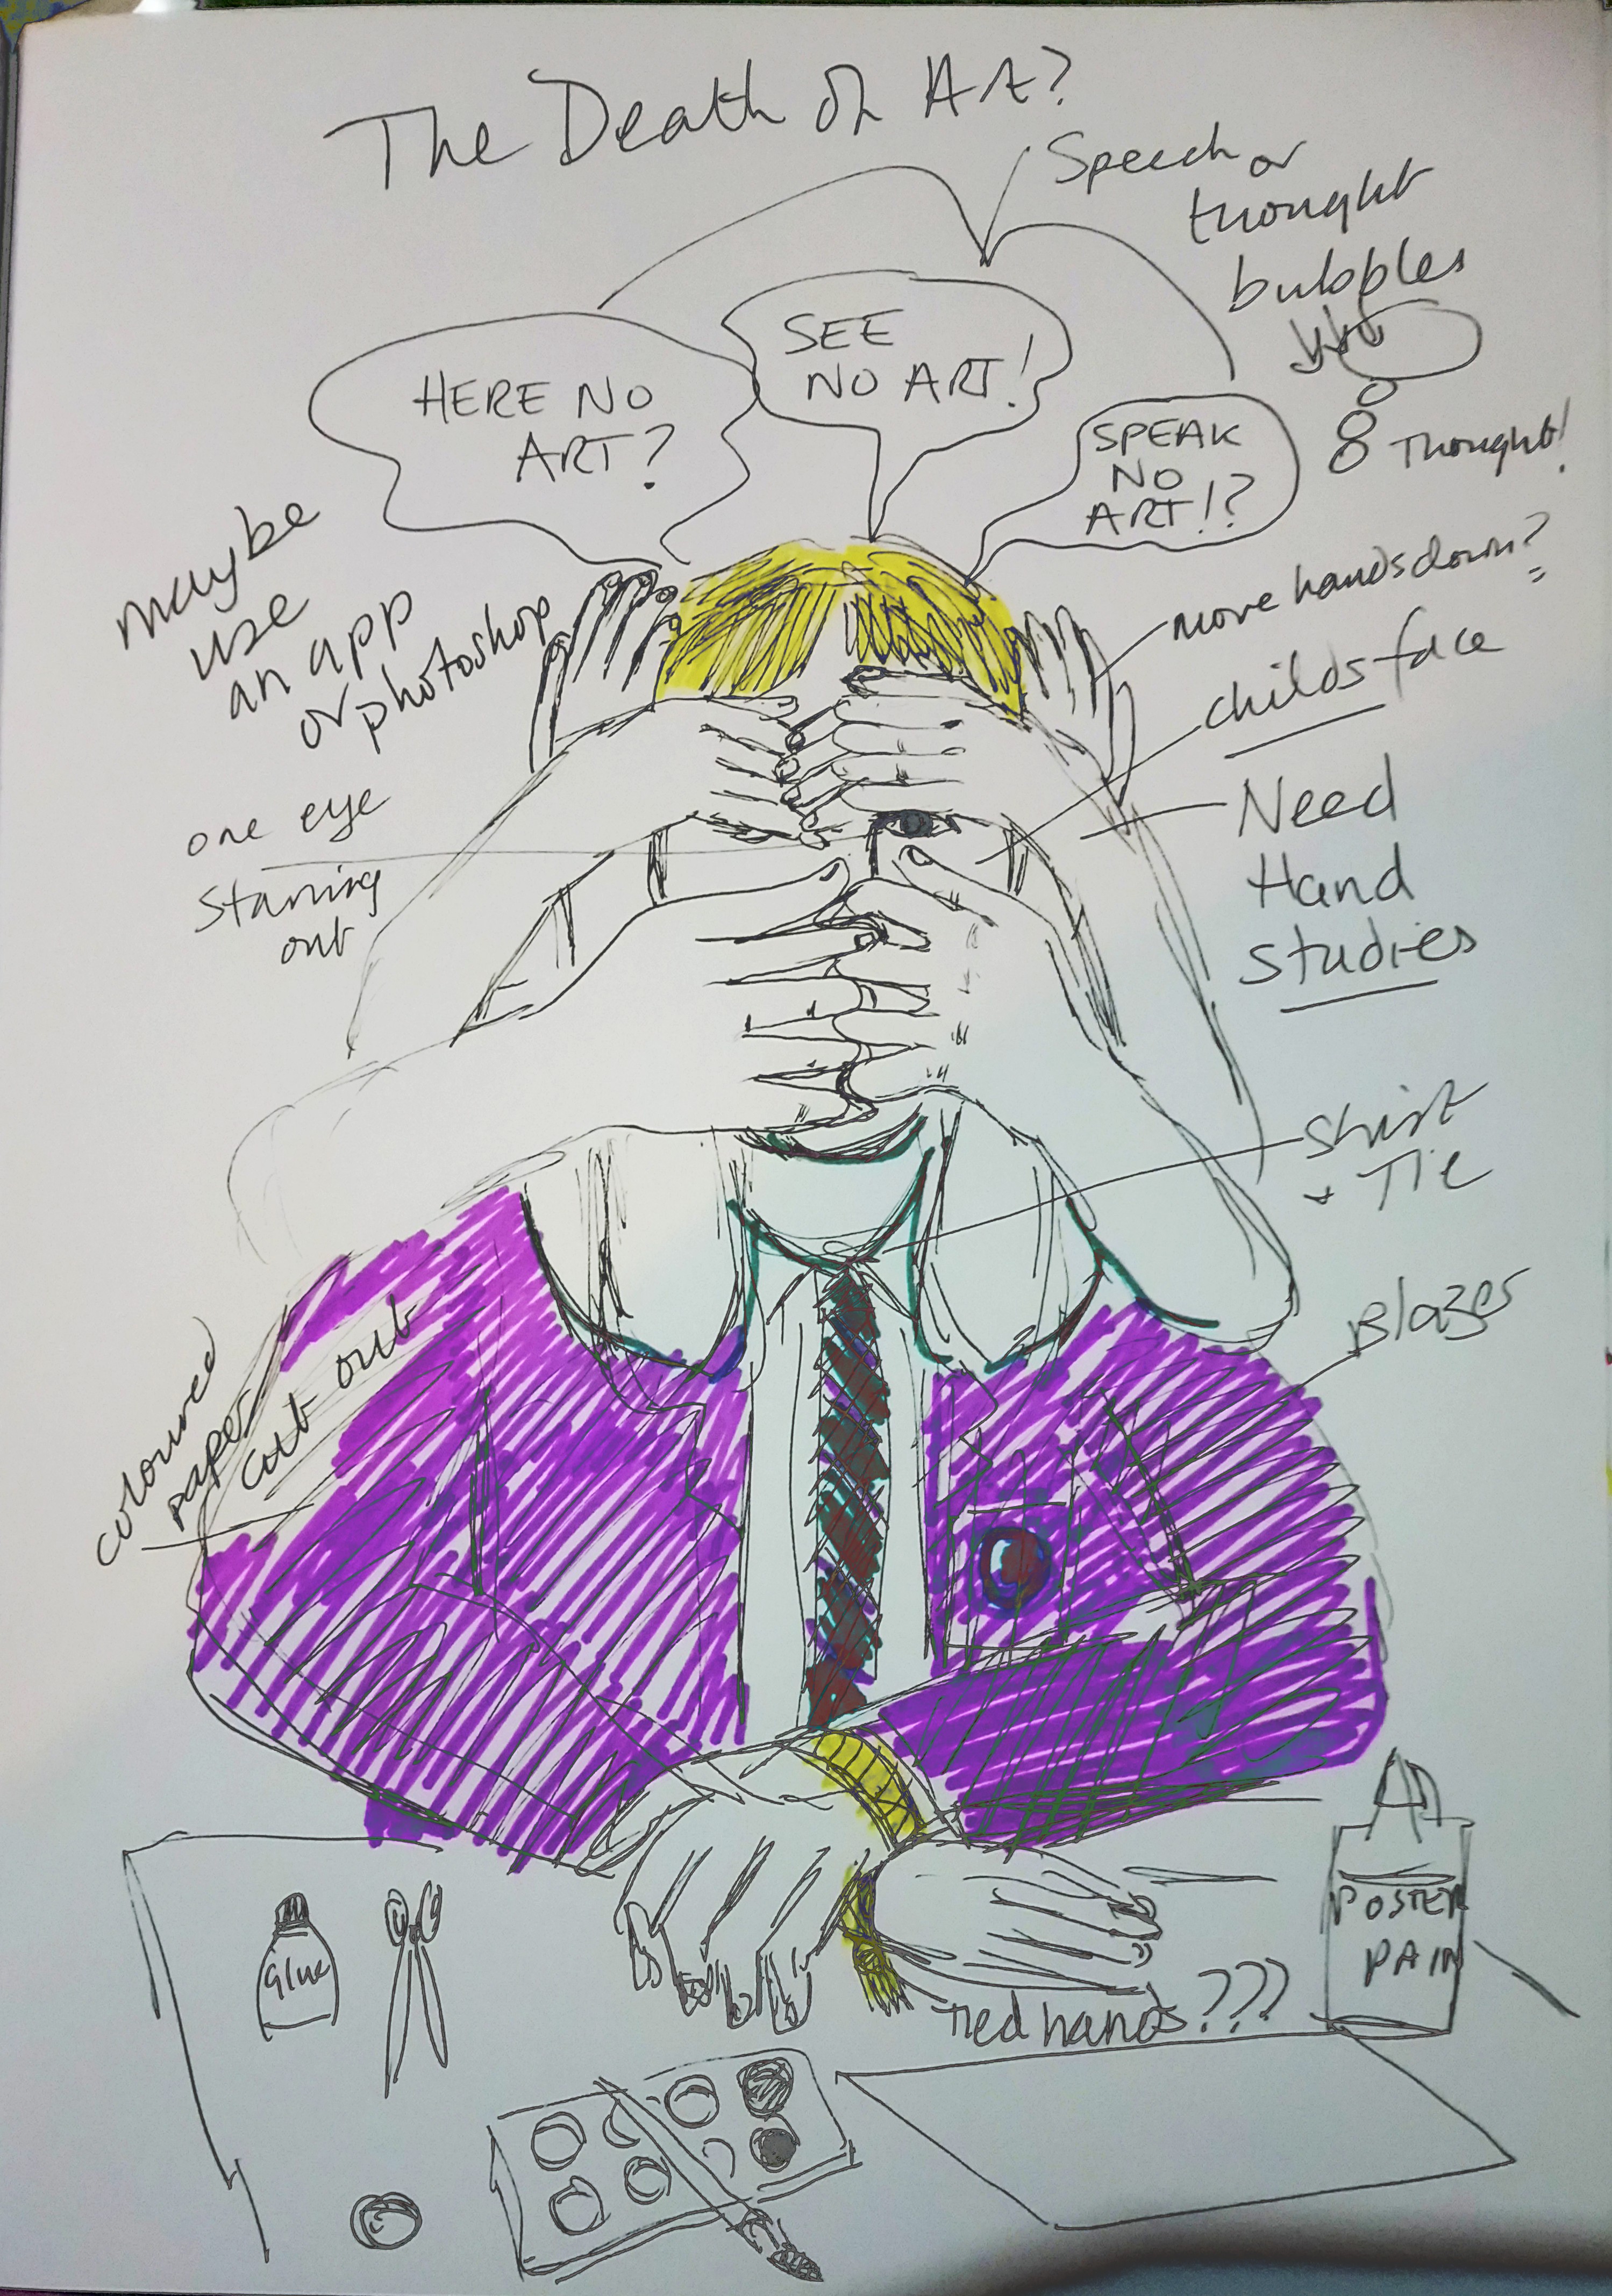 The Death of Art?
Speech or
thought
bubbles
HERE NO
ART?
SEE
NO ART!
SPEAK
NO
ART!?
Thought!
maybe
use
an app
or photoshop
move hands down?
childs face
one eye
starring
out
Need
Hand
studies
Shirt
+ Tie
Blazer
coloured
paper
cut out
Glue
Tied hands???
POSTER
PAIN